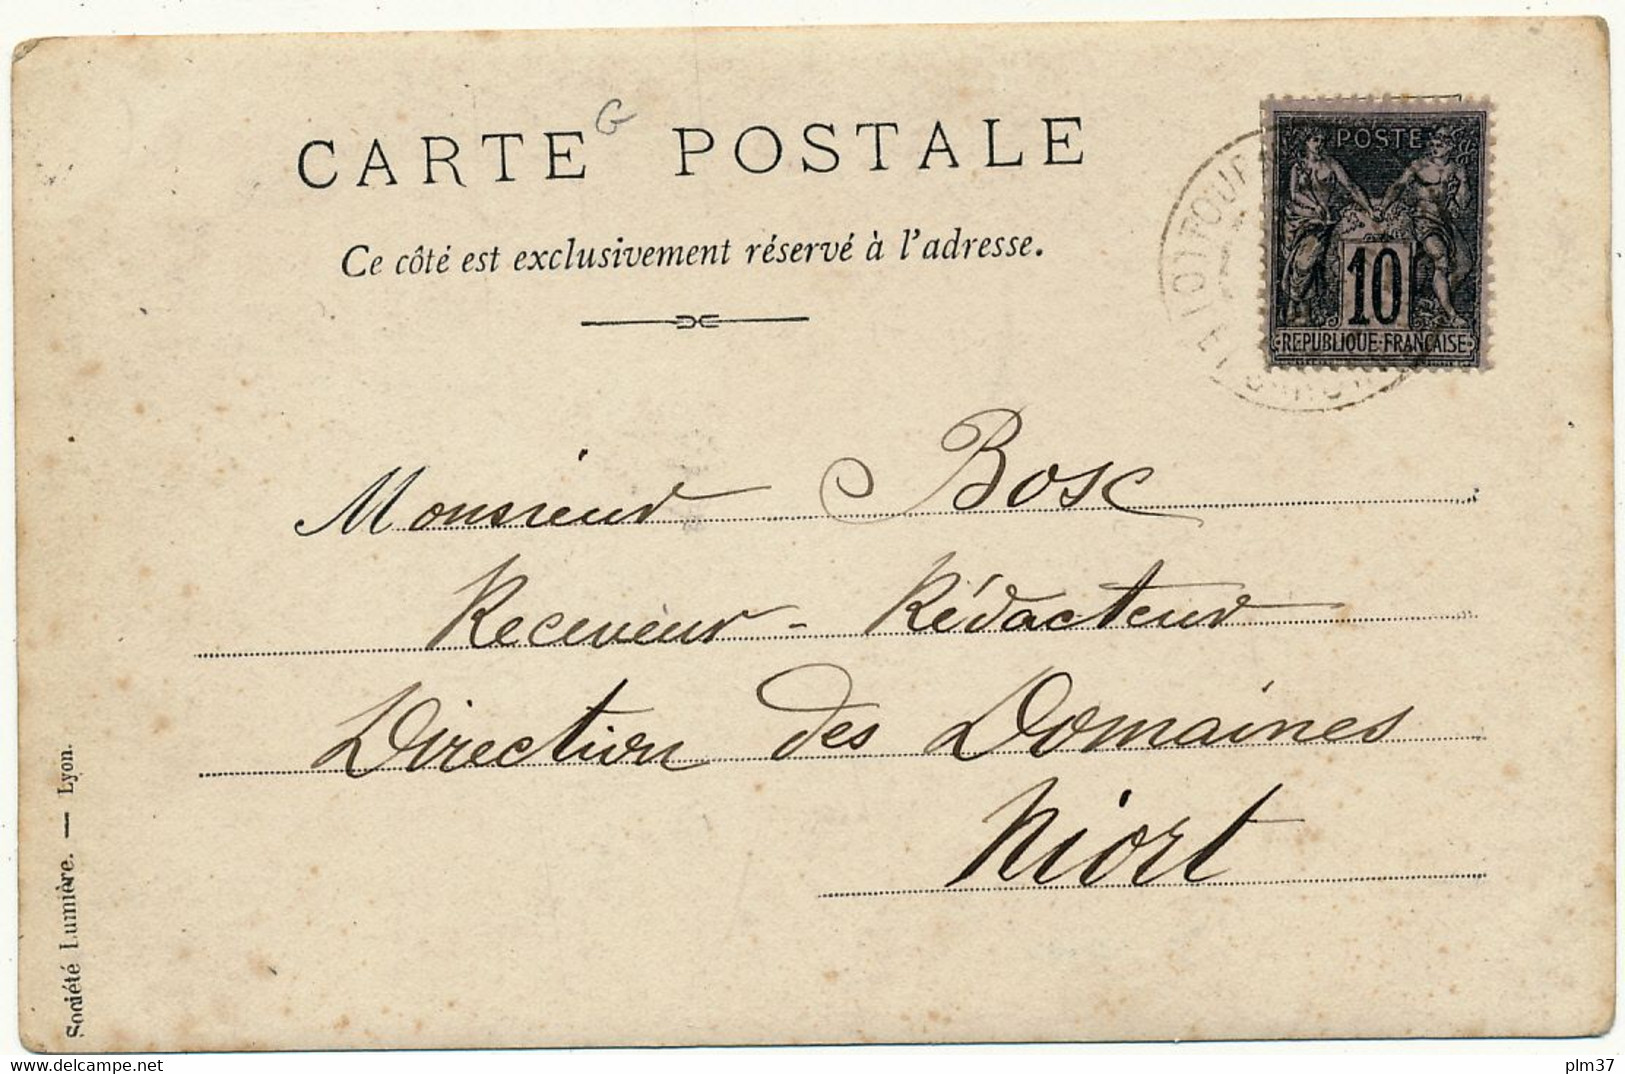 CARTE POSTALE
G
Ce côté est exclusivement réservé à l'adresse.
POSTE
10
REPUBLIQUE FRANÇAISE
Monsieur Bosc
Receveur - Rédacteur
Direction des Domaines
Niort
Société Lumière. — Lyon.
plm37